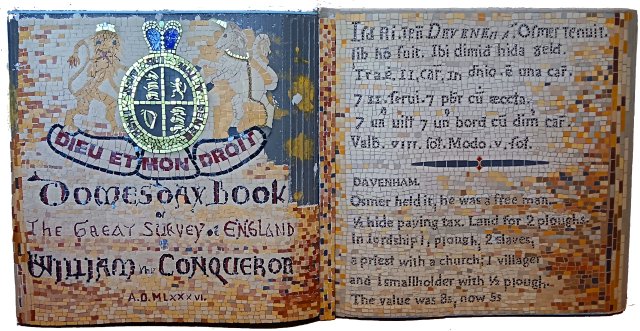 DIEU ET MON DROIT
Domesday Book
or
The Great Survey of England
William the Conqueror
A.D. MLXXXVI.
DEVENEHĀ. Osmer tenuit.
lib hō fuit. Ibi dimid hida geld.
Tra.ē.II.car. in dnio.ē una car.
7 II. serui. 7 pbr cū æccta.
7 un uitt 7 un bord cū dim car.
Valb. VIII. sol. Modo. v. sol.
DAVENHAM.
Osmer held it, he was a free man..
½ hide paying tax. Land for 2 ploughs.
In lordship 1, plough, 2 slaves,
a priest with a church; 1 villager
and 1 smallholder with ½ plough..
The value was 8s, now 5s